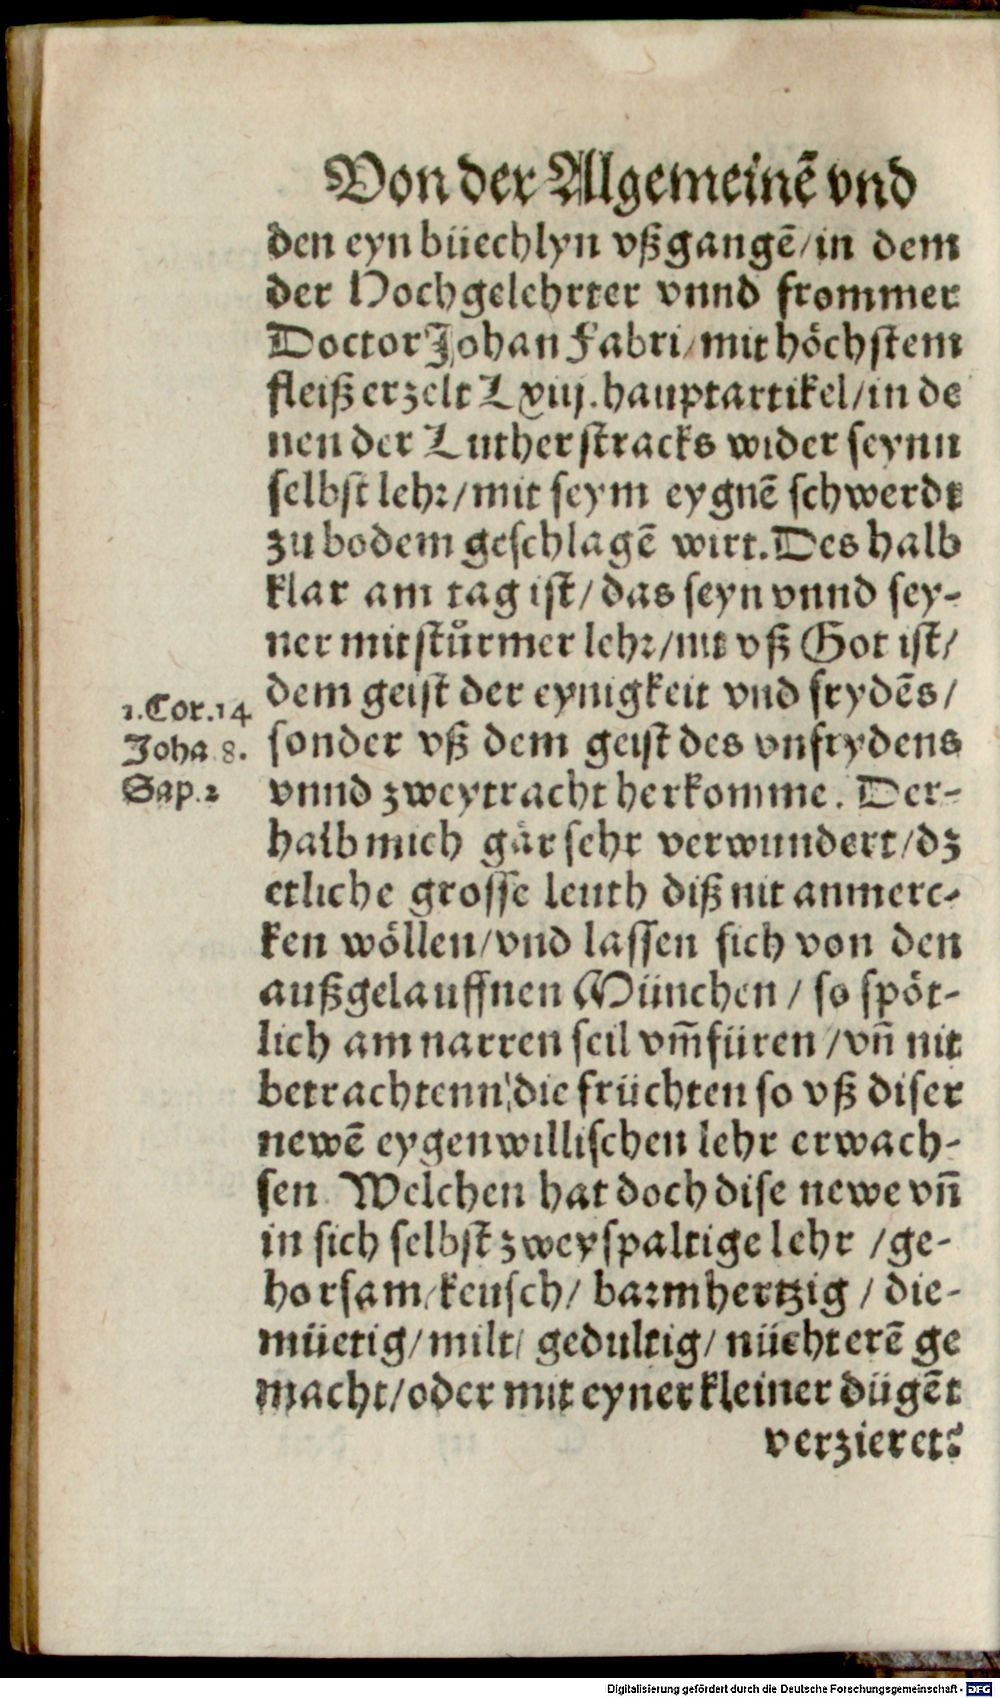 Von der Algemeinē vnd
den eyn büechlyn vßgangē/in dem
der Hochgelehrter vnnd frommer
Doctor Johan Fabri/mit höchstem
fleiß erzelt Lxiij.hauptartikel/in de
nen der Luther stracks wider seynn
selbst lehꝛ/mit seym eygnē schwerdt
zu bodem geschlagē wirt.Des halb
klar am tag ist/das seyn vnnd sey-
ner mitstůrmer lehꝛ/nit vß Got ist/
dem geist der eynigkeit vnd frydēs/
1.Cor.14
Joha.8.
Sap.2
sonder vß dem geist des vnfrydens
vnnd zweytracht herkomme. Der-
halb mich gar sehr verwundert/dz
etliche grosse leuth diß nit anmerc-
ken wöllen/vnd lassen sich von den
außgelauffnen München / so spöt-
lich am narren seil vm̄füren /vn̄ nit
betrachtenn/die früchten so vß diser
newē eygenwillischen lehr erwach-
sen. Welchen hat doch dise newe vn̄
in sich selbst zweyspaltige lehr /ge-
horsam/keusch/ baꝛmhertzig / die-
müetig/milt/ gedultig/ nüchterē ge
macht/oder mit eyner kleiner dügēt
verzieret?
Digitalisierung gefördert durch die Deutsche Forschungsgemeinschaft - DFG